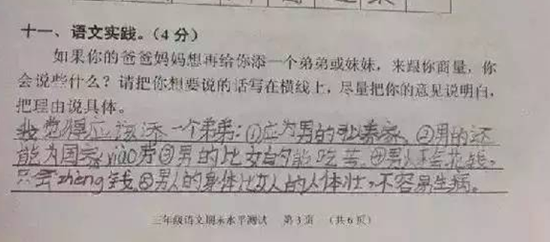 十一、语文实践。(4分)
如果你的爸爸妈妈想再给你添一个弟弟或妹妹，来跟你商量，你
会说些什么？请把你想要说的话写在横线上，尽量把你的意见说明白，
把理由说具体。
我觉得应该添一个弟弟：①应为男的nì养家，②男的还
能为国家xiào劳③男的比女的能吃苦。④男人不乱花钱，
只会zhèng钱⑤男人的身体比女人的人体壮，不容易生病。
三年级语文期末水平测试 第3页 (共6页)